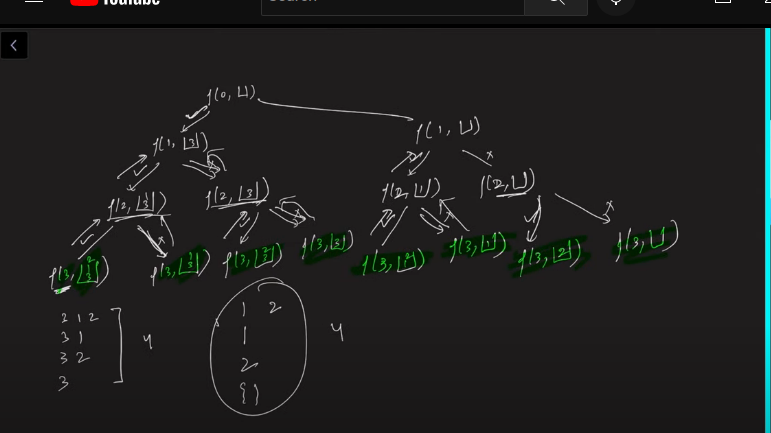 YouTube
Search
f(0, ⊔)
f(1, [3])
f(1, ⊔)
f(2, [3 1])
f(2, [3])
f(2, [1])
f(2, ⊔)
f(3, [3 1 2])
f(3, [3 1])
f(3, [3 2])
f(3, [3])
f(3, [1 2])
f(3, [1])
f(3, [2])
f(3, ⊔)
3 1 2
3 1
3 2
3
4
1 2
1
2
{}
4